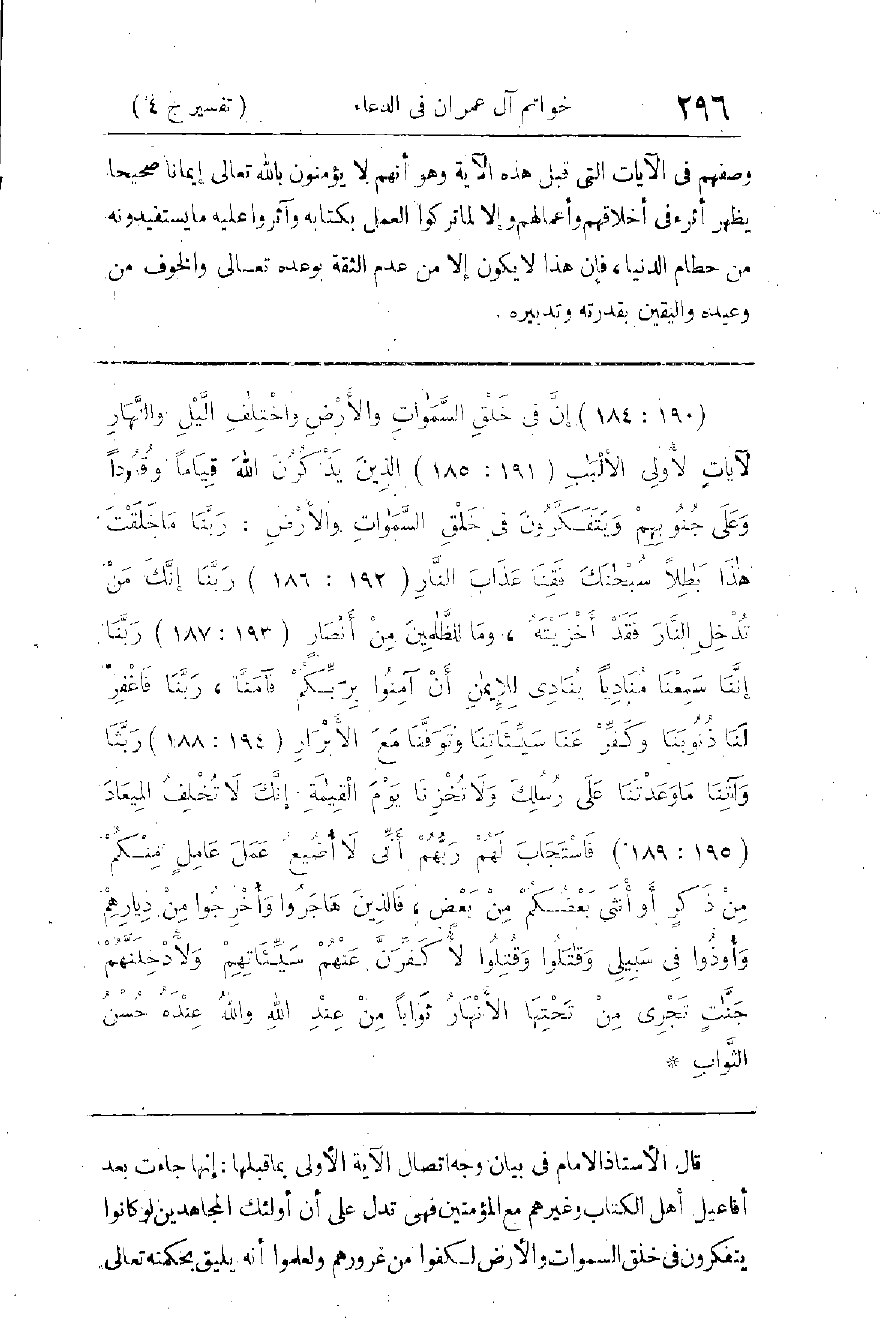 ٢٩٦ خواتم آل عمران فى الدعاء ( تفسير ج ٤ )
وصفهم فى الآيات التى قبل هذه الآية وهو أنهم لا يؤمنون بالله تعالى إيمانا صحيحا
يظهر أثره فى أخلاقهم وأعمالهم وإلا لما تركوا العمل بكتابه وآثروا عليه ما يستفيدونه
من حطام الدنيا ، فإن هذا لا يكون إلا من عدم الثقة بوعده تعالى والخوف من
وعيده واليقين بقدرته وتدبيره .
(١٩٠ : ١٨٤) إِنَّ فى خَلْقِ السَّمٰوَاتِ والأَرْضِ واخْتِلٰفِ الَّيْلِ والنَّهَارِ
لَآيَاتٍ لأُولِى الأَلْبٰبِ (١٩١ : ١٨٥) الَّذِينَ يَذْكُرُنَ اللهَ قِيَاماً وقُعُوداً
وَعَلَى جُنُوبِهِمْ وَيَتَفَكَّرُونَ فى خَلْقِ السَّمٰوَاتِ والأَرْضِ : رَبَّنَا مَاخَلَقْتَ
هٰذَا بَٰطِلاً سُبْحٰنَكَ فَقِنَا عَذَابَ النَّارِ (١٩٢ : ١٨٦) رَبَّنَا إنَّكَ مَنْ
تُدْخِلِ النَّارَ فَقَدْ أَخْزَيْتَهُ ، ومَا لِلظَّٰلِمِينَ مِنْ أَنْصَارٍ (١٩٣ : ١٨٧) رَبَّنَا
إنَّنَا سَمِعْنَا مُنَادِياً يُنَادِى لِلإِيمٰنِ أَنْ آمِنُوا بِرَبِّكُمْ فَآمَنَّا ، رَبَّنَا فَاغْفِرْ
لَنَا ذُنُوبَنَا وكَفِّرْ عَنَا سَيِّئَاتِنَا وتَوَفَّنَا مَعَ الأَبْرَارِ (١٩٤ : ١٨٨) رَبَّنَا
وَآتِنَا مَاوَعَدْتَنَا عَلَى رُسُلِكَ وَلَا تُخْزِنَا يَوْمَ الْقِيٰمَةِ إنَّكَ لَا تُخْلِفُ المِيعَادَ
(١٩٥ : ١٨٩) فَاسْتَجَابَ لَهُمْ رَبُّهُمْ أَنِّى لَا أُضِيعُ عَمَلَ عَامِلٍ مِنْكُمْ
مِنْ ذَكَرٍ أَو أُنْثَى بَعْضُكُمْ مِنْ بَعْضٍ ، فَالَّذِينَ هَاجَرُوا وَأُخْرِجُوا مِنْ دِيَارِهِمْ
وَأُوذُوا فِى سَبِيلِى وَقٰتَلُوا وَقُتِلُوا لأُكَفِّرَنَّ عَنْهُمْ سَيِّئَاتِهِمْ وَلأُدْخِلَنَّهُمْ
جَنّٰتٍ تَجْرِى مِنْ تَحْتِهَا الأَنْهَارُ ثَوَاباً مِنْ عِنْدِ اللهِ واللهُ عِنْدَهُ حُسْنُ
الثَّوَابِ *
قال الأستاذ الامام فى بيان وجه اتصال الآية الأولى بما قبلها : إنها جاءت بعد
أفاعيل أهل الكتاب وغيرهم مع المؤمنين فهى تدل على أن أولئك المجاهدين لو كانوا
يتفكرون فى خلق السموات والأرض لكفوا من غرورهم ولعلموا أنه يليق بحكمته تعالى